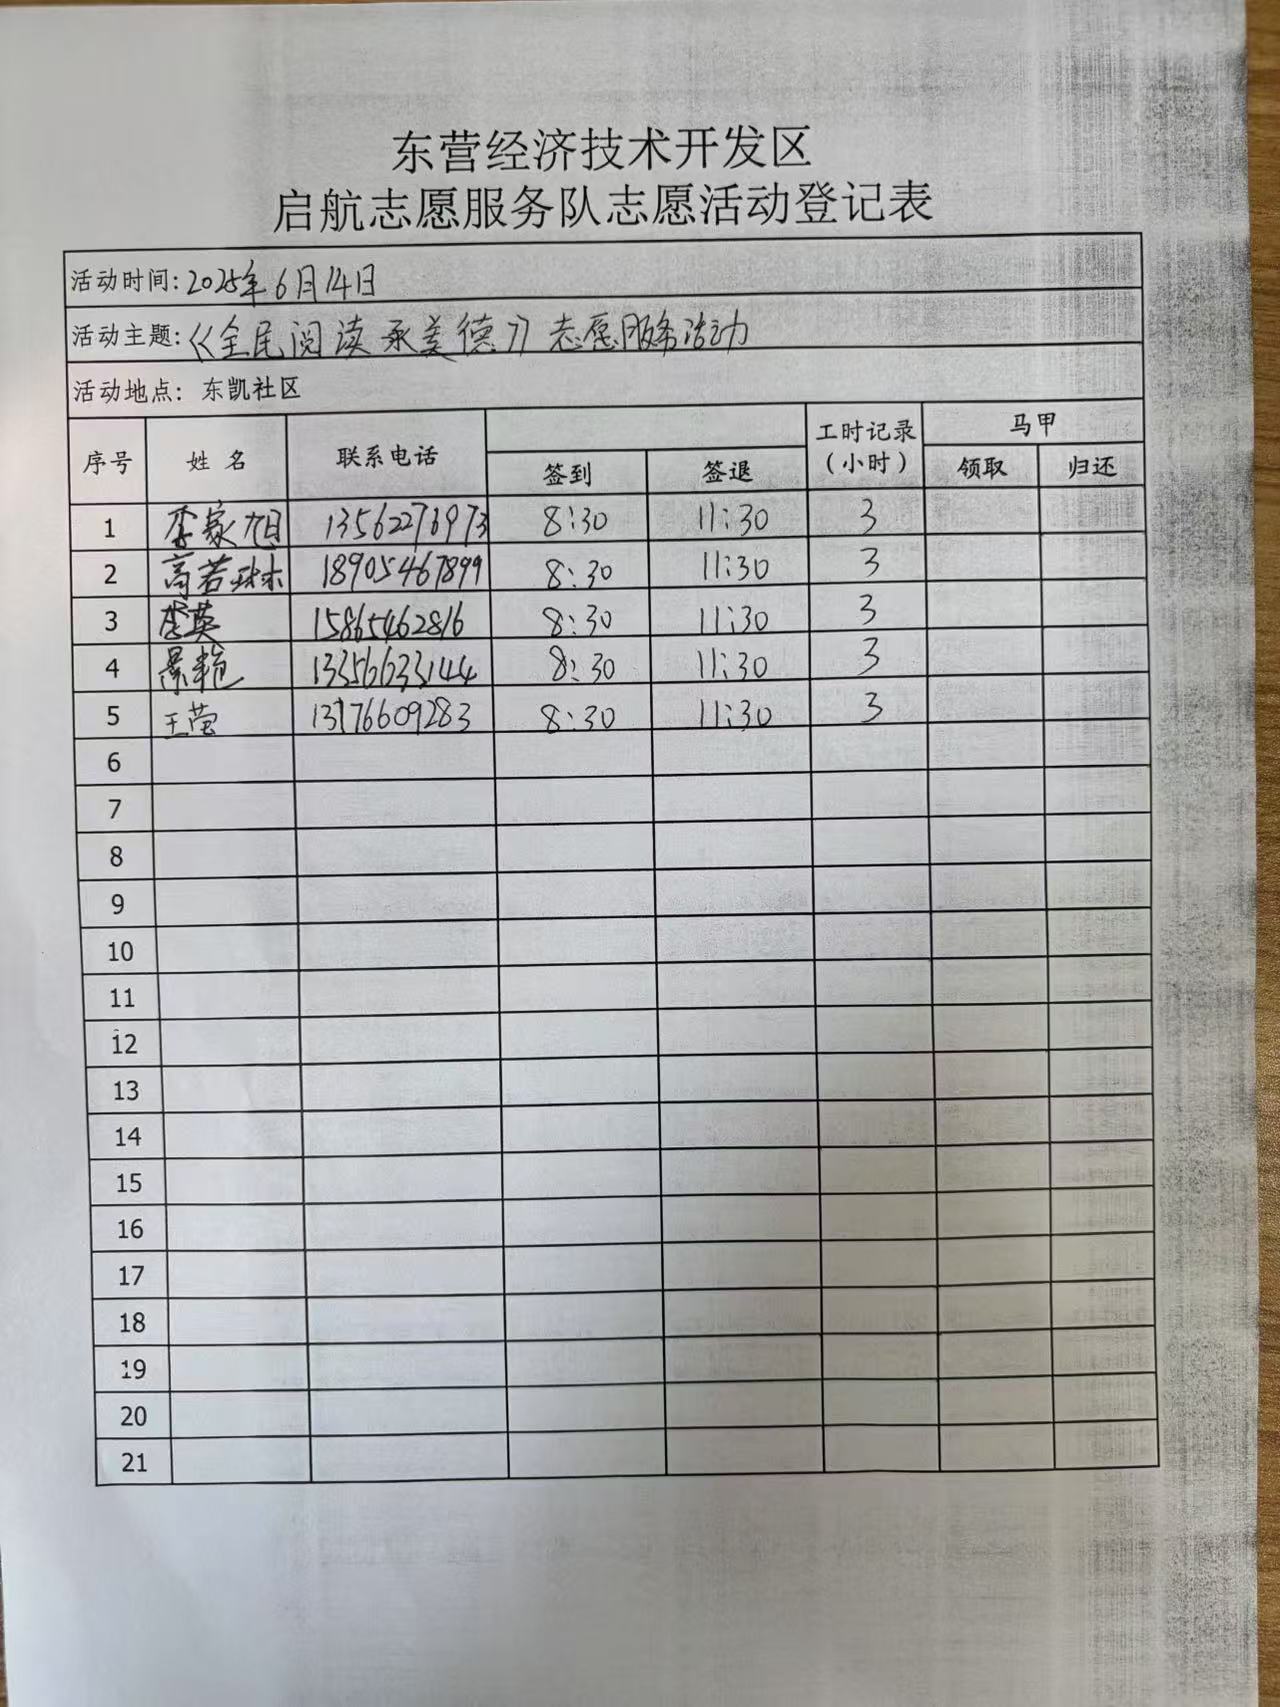 东营经济技术开发区
启航志愿服务队志愿活动登记表
活动时间: 2025年6月14日
活动主题: 《全民阅读 承美德》志愿服务活动
活动地点: 东凯社区
序号 姓名 联系电话 签到 签退 工时记录(小时) 马甲 领取 归还
1 李家旭 13562276973 8:30 11:30 3
2 高若琳 18905467899 8:30 11:30 3
3 李英 15865462816 8:30 11:30 3
4 景 13356633144 8:30 11:30 3
5 王莹 13176609283 8:30 11:30 3
6
7
8
9
10
11
12
13
14
15
16
17
18
19
20
21